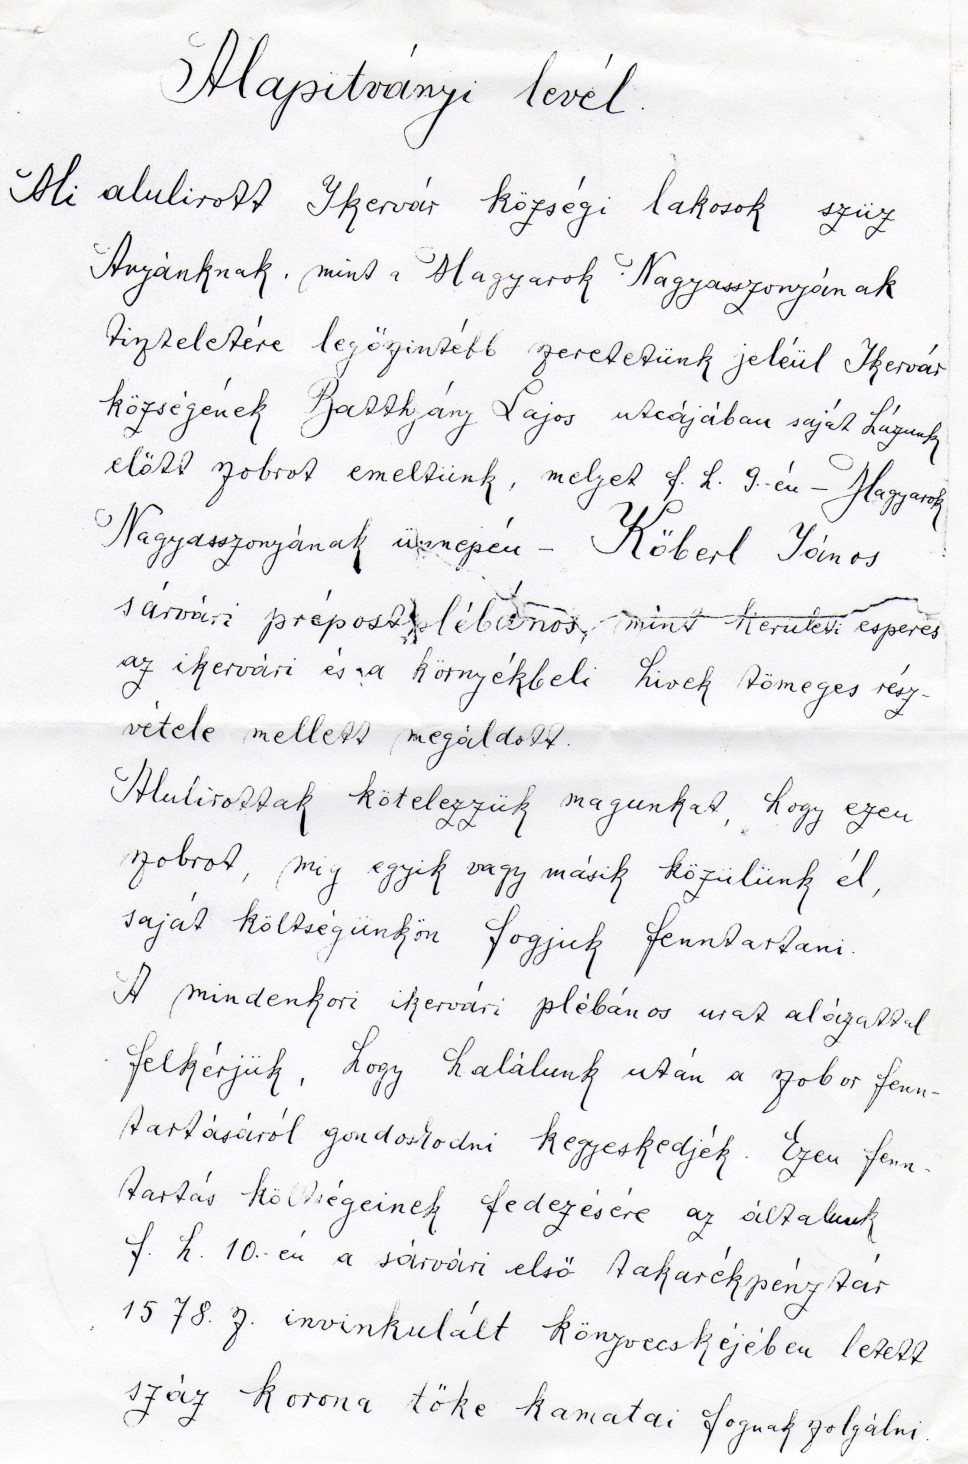 Alapitványi levél.
Mi alulirott Ikervár községi lakosok szüz
Anyánknak, mint a Magyarok Nagyasszonyának
tiszteletére legöszintébb szeretetünk jeléül Ikervár
községének Batthyány Lajos utcájában saját házunk
elött szobrot emeltünk, melyet f. h. 9.-én – Magyarok
Nagyasszonyának ünnepén – Köberl János
sárvári prépostplébános, mint kerületi esperes
az ikervári és a környékbeli hivek tömeges rész-
vétele mellett megáldott.
Alulirottak kötelezzük magunkat, hogy ezen
szobrot, mig egyik vagy másik közülünk él,
saját költségünkön fogjuk fenntartani.
A mindenkori ikervári plébános urat alázattal
felkérjük, hogy halálunk után a szobor fenn-
tartásáról gondoskodni kegyeskedjék. Ezen fenn-
tartás költségeinek fedezésére az általunk
f. h. 10.-én a sárvári elsö takarékpénztár
1578. sz. invinkulált könyvecskéjében letett
száz korona töke kamatai fognak szolgálni.